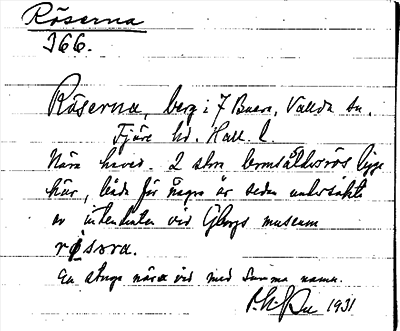 Röserna
I66.
Röserna, berg i 7 Buera, Vallda sn.
Fjäre hd. Hall. l.
Nära havet. 2 stora bronsåldersrös ligga
här, båda för några år sedan undersökta
av intendenten vid Gbgs museum
rø̀səra.
En stuga nära vid med samma namn.
1931